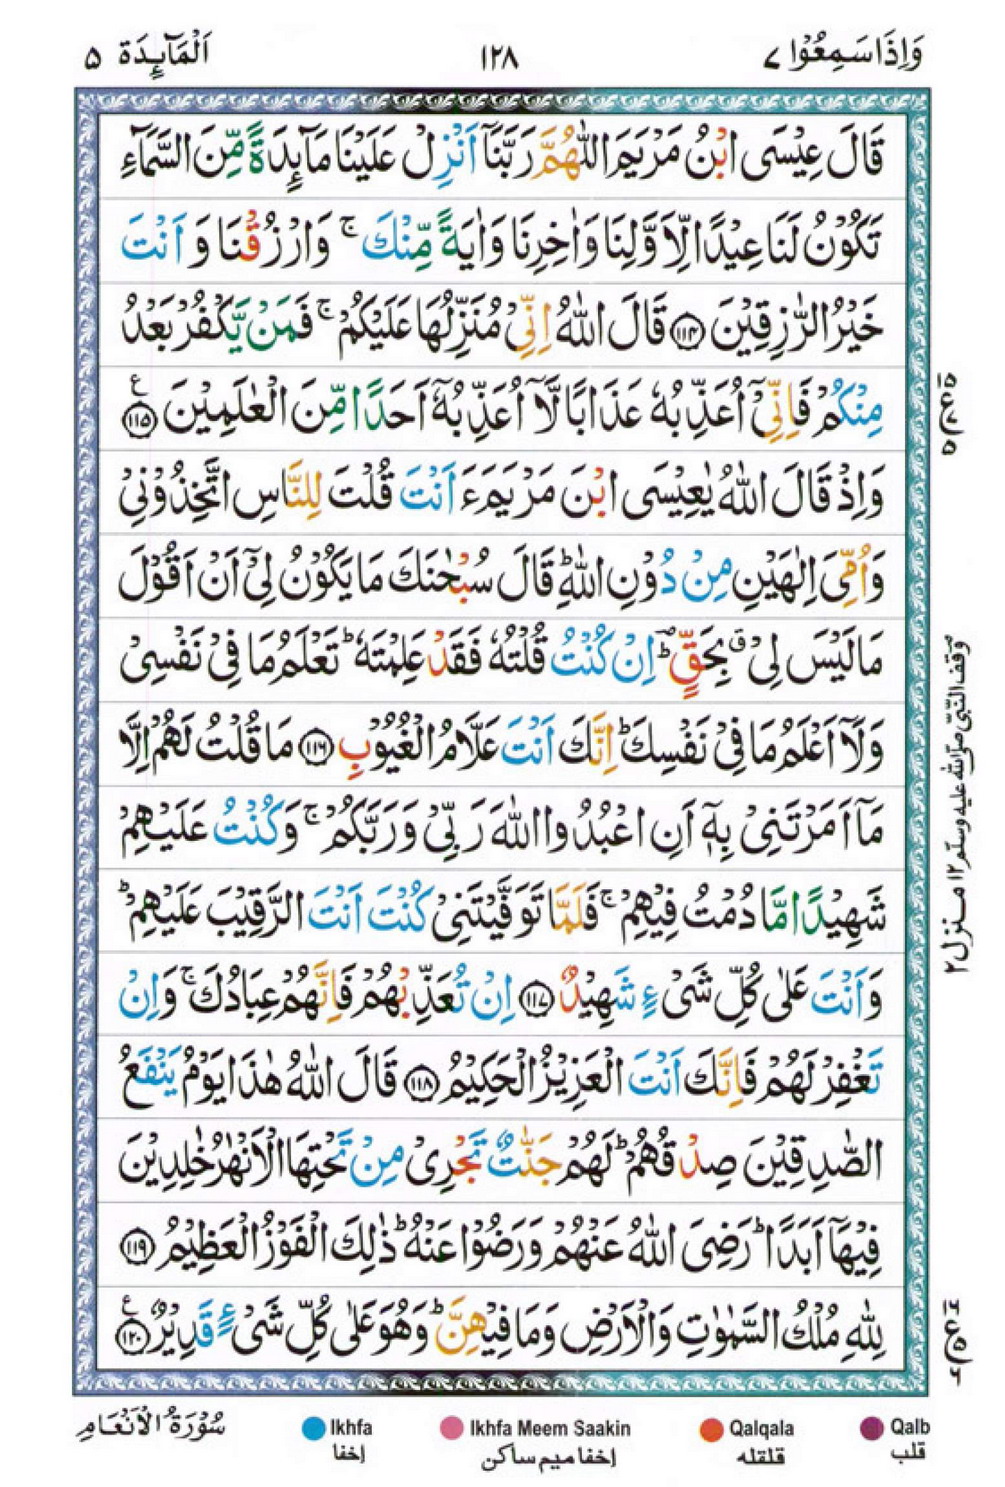 وَاِذَا سَمِعُوْا ٧
١٢٨
اَلْمَآئِدَة ٥
قَالَ عِيْسَى ابْنُ مَرْيَمَ اللّٰهُمَّ رَبَّنَاۤ اَنْزِلْ عَلَيْنَا مَآئِدَةً مِّنَ السَّمَآءِ
تَكُوْنُ لَنَا عِيْدًا لِّاَوَّلِنَا وَاٰخِرِنَا وَاٰيَةً مِّنْكَ ۚ وَارْزُقْنَا وَ اَنْتَ
خَيْرُ الرّٰزِقِيْنَ ۝١١٤ قَالَ اللّٰهُ اِنِّيْ مُنَزِّلُهَا عَلَيْكُمْ ۚ فَمَنْ يَّكْفُرْ بَعْدُ
مِنْكُمْ فَاِنِّيْۤ اُعَذِّبُهٗ عَذَابًا لَّاۤ اُعَذِّبُهٗۤ اَحَدًا مِّنَ الْعٰلَمِيْنَ ۝١١٥ ع
وَاِذْ قَالَ اللّٰهُ يٰعِيْسَى ابْنَ مَرْيَمَ ءَ اَنْتَ قُلْتَ لِلنَّاسِ اتَّخِذُوْنِيْ
وَاُمِّيَ اِلٰهَيْنِ مِنْ دُوْنِ اللّٰهِ ؕ قَالَ سُبْحٰنَكَ مَا يَكُوْنُ لِيْۤ اَنْ اَقُوْلَ
مَا لَيْسَ لِيْ ۗ بِحَقٍّ ؕ اِنْ كُنْتُ قُلْتُهٗ فَقَدْ عَلِمْتَهٗ ؕ تَعْلَمُ مَا فِيْ نَفْسِيْ
وَلَاۤ اَعْلَمُ مَا فِيْ نَفْسِكَ ؕ اِنَّكَ اَنْتَ عَلَّامُ الْغُيُوْبِ ۝١١٦ مَا قُلْتُ لَهُمْ اِلَّا
مَاۤ اَمَرْتَنِيْ بِهٖۤ اَنِ اعْبُدُوا اللّٰهَ رَبِّيْ وَرَبَّكُمْ ۚ وَكُنْتُ عَلَيْهِمْ
شَهِيْدًا مَّا دُمْتُ فِيْهِمْ ۚ فَلَمَّا تَوَفَّيْتَنِيْ كُنْتَ اَنْتَ الرَّقِيْبَ عَلَيْهِمْ ؕ
وَاَنْتَ عَلٰى كُلِّ شَيْءٍ شَهِيْدٌ ۝١١٧ اِنْ تُعَذِّبْهُمْ فَاِنَّهُمْ عِبَادُكَ ۚ وَاِنْ
تَغْفِرْ لَهُمْ فَاِنَّكَ اَنْتَ الْعَزِيْزُ الْحَكِيْمُ ۝١١٨ قَالَ اللّٰهُ هٰذَا يَوْمُ يَنْفَعُ
الصّٰدِقِيْنَ صِدْقُهُمْ ؕ لَهُمْ جَنّٰتٌ تَجْرِيْ مِنْ تَحْتِهَا الْاَنْهٰرُ خٰلِدِيْنَ
فِيْهَاۤ اَبَدًا ؕ رَضِيَ اللّٰهُ عَنْهُمْ وَرَضُوْا عَنْهُ ؕ ذٰلِكَ الْفَوْزُ الْعَظِيْمُ ۝١١٩
لِلّٰهِ مُلْكُ السَّمٰوٰتِ وَالْاَرْضِ وَمَا فِيْهِنَّ ؕ وَهُوَ عَلٰى كُلِّ شَيْءٍ قَدِيْرٌ ۝١٢٠ ع
وقف النبى صلى الله عليه وسلم ١٢ منزل ٢
سُوْرَةُ الْاَنْعَام
Ikhfa
Ikhfa Meem Saakin
Qalqala
Qalb
إخفا
إخفا ميم ساكن
قلقله
قلب